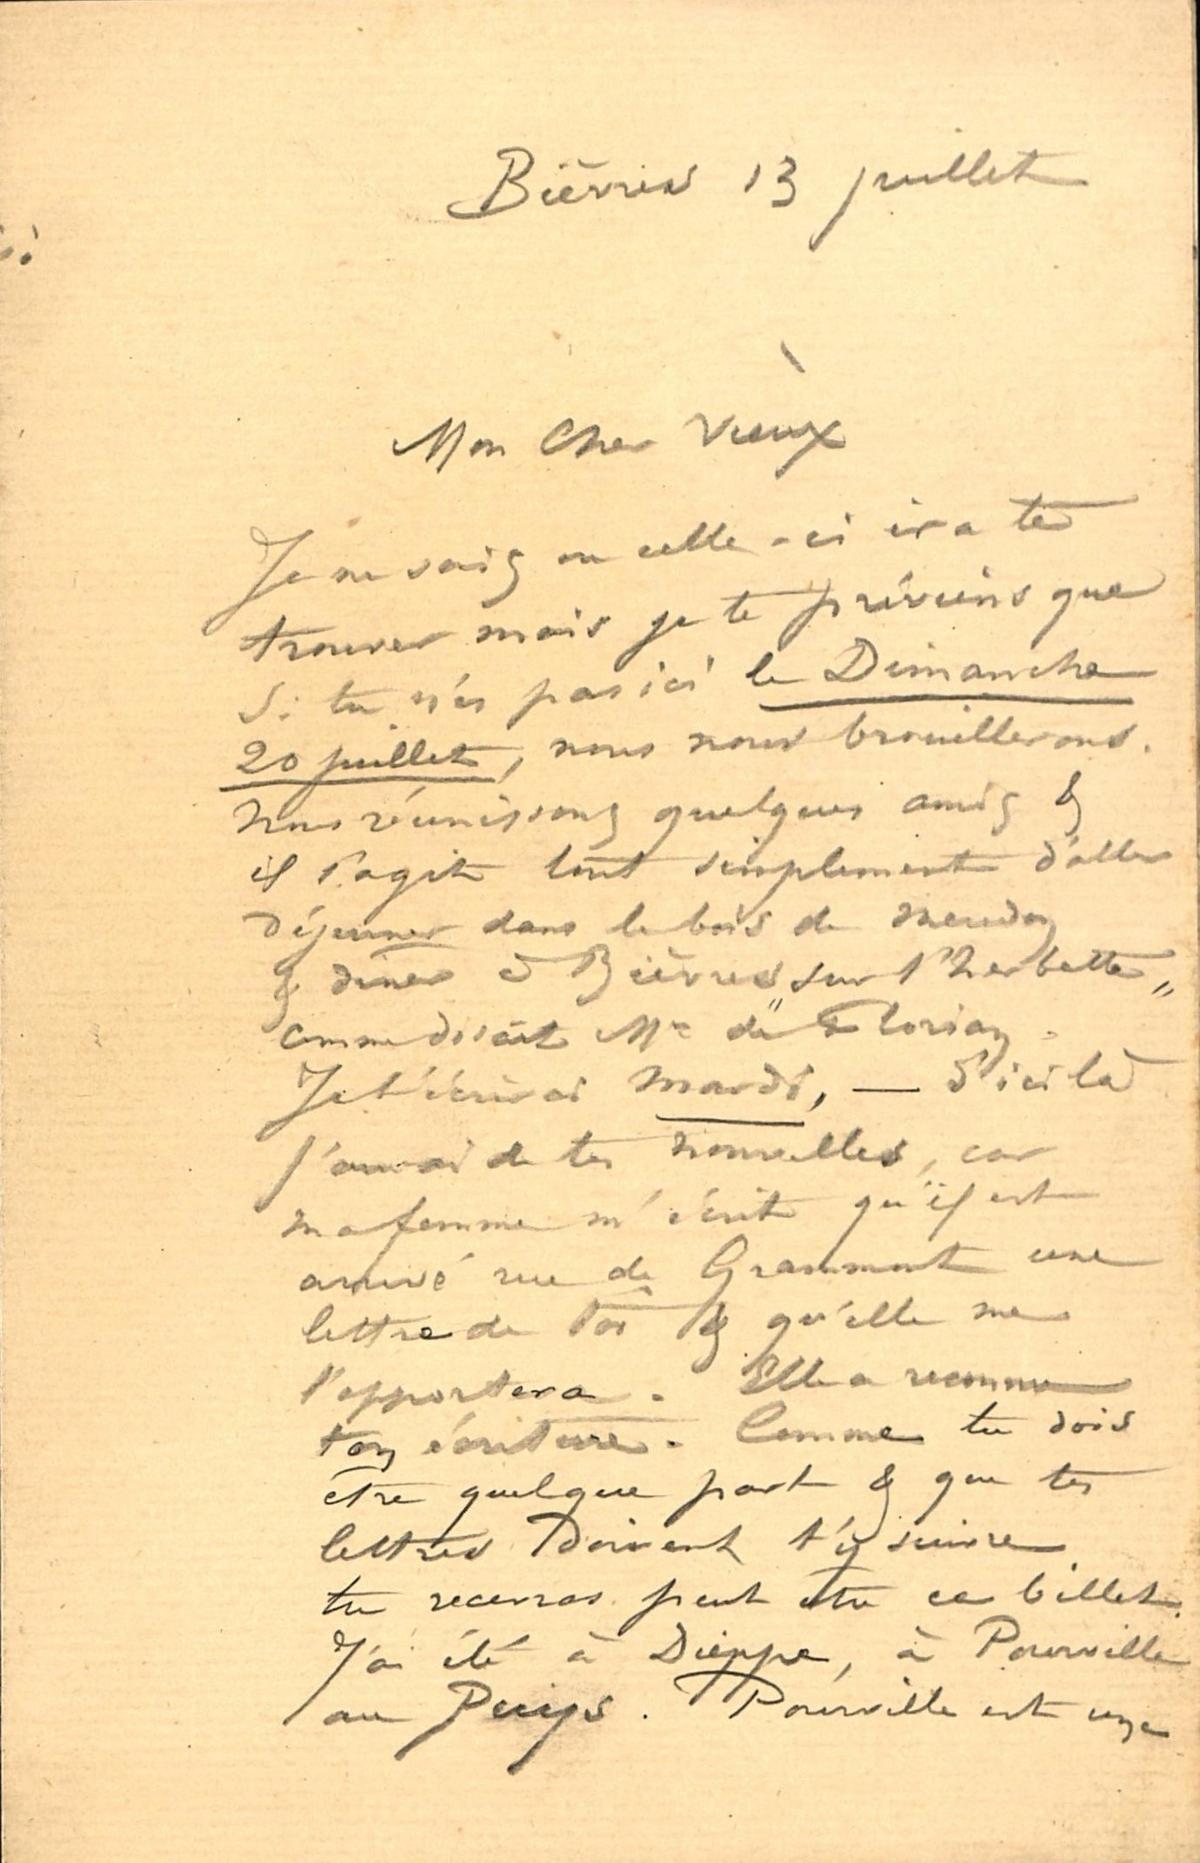 Bièvres 13 juillet
Mon Cher Vieux
Je ne sais ou celle-ci ira te
trouver mais je te préviens que
si tu n'es pas ici le Dimanche
20 juillet, nous nous brouillerons.
Nous réunissons quelques amis &
il s'agit tout simplement d'aller
Déjeuner dans le bois de Meudon
& diner à Bièvres "sur l'herbette"
comme disait Mr de Florian.
Je t'écrirai Mardi, — d'ici là
j'aurai de tes nouvelles, car
ma femme m'écrit qu'il est
arrivé rue de Grammont une
lettre de toi & qu'elle me
l'apportera. Elle a reconnu
ton écriture. Comme tu dois
être quelque part & que tes
lettres doivent t'y suivre
tu recevras peut être ce billet.
J'ai été à Dieppe, à Pourville
au Puys. Pourville est une